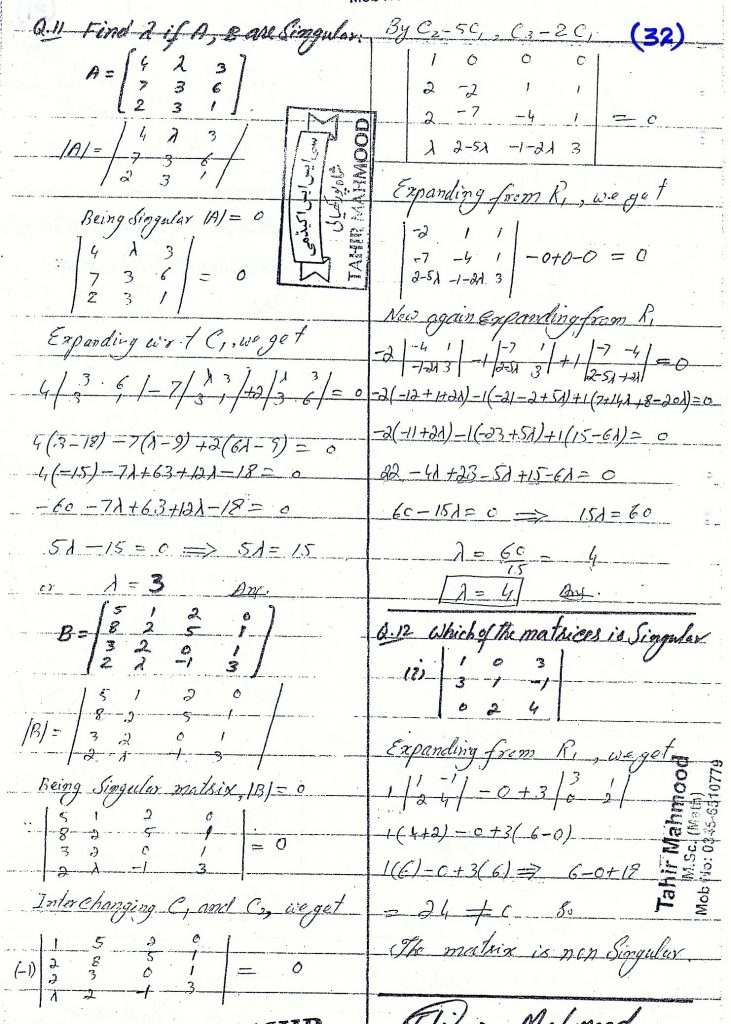 Q.11 Find λ if A, B are Singular.
A = [ 4 λ 3
7 3 6
2 3 1 ]
|A| = | 4 λ 3
7 3 6
2 3 1 |
Being Singular |A| = 0
| 4 λ 3
7 3 6
2 3 1 | = 0
Expanding w.r.t C₁, we get
4 | 3 6 | - 7 | λ 3 | + 2 | λ 3 | = 0
3 1 3 1 3 6
4(3-18) - 7(λ-9) + 2(6λ-9) = 0
4(-15) - 7λ + 63 + 12λ - 18 = 0
-60 - 7λ + 63 + 12λ - 18 = 0
5λ - 15 = 0 ⟹ 5λ = 15
or λ = 3 Ans.
B = [ 5 1 2 0
8 2 5 1
3 2 0 1
2 λ -1 3 ]
|B| = | 5 1 2 0
8 2 5 1
3 2 0 1
2 λ -1 3 |
Being Singular matrix, |B| = 0
| 5 1 2 0
8 2 5 1
3 2 0 1
2 λ -1 3 | = 0
Interchanging C₁ and C₂, we get
(-1) | 1 5 2 0
2 8 5 1
2 3 0 1
λ 2 -1 3 | = 0
TAHIR MAHMOOD
سی ایس ایس اکیڈمی
(32)
By C₂-5C₁, C₃-2C₁
| 1 0 0 0
2 -2 1 1
2 -7 -4 1
λ 2-5λ -1-2λ 3 | = 0
Expanding from R₁, we get
| -2 1 1
-7 -4 1
2-5λ -1-2λ 3 | -0+0-0 = 0
Now again expanding from R₁
-2 | -4 1 | -1 | -7 1 | +1 | -7 -4 | = 0
-1-2λ 3 2-5λ 3 2-5λ -1-2λ
-2(-12+1+2λ)-1(-21-2+5λ)+1(7+14λ+8-20λ)=0
-2(-11+2λ)-1(-23+5λ)+1(15-6λ) = 0
22-4λ+23-5λ+15-6λ = 0
60-15λ = 0 ⟹ 15λ = 60
λ = 60/15 = 4
λ = 4 Ans.
Q.12 Which of the matrices is Singular
(i) | 1 0 3
3 1 -1
0 2 4 |
Expanding from R₁, we get
1 | 1 -1 | -0+3 | 3 1 |
2 4 0 2
1(4+2)-0+3(6-0)
1(6)-0+3(6) ⟹ 6-0+18
= 24 ≠ 0 So
The matrix is non Singular.
Tahir Mahmood
M.Sc. (Math)
Mob No: 0345-6510779